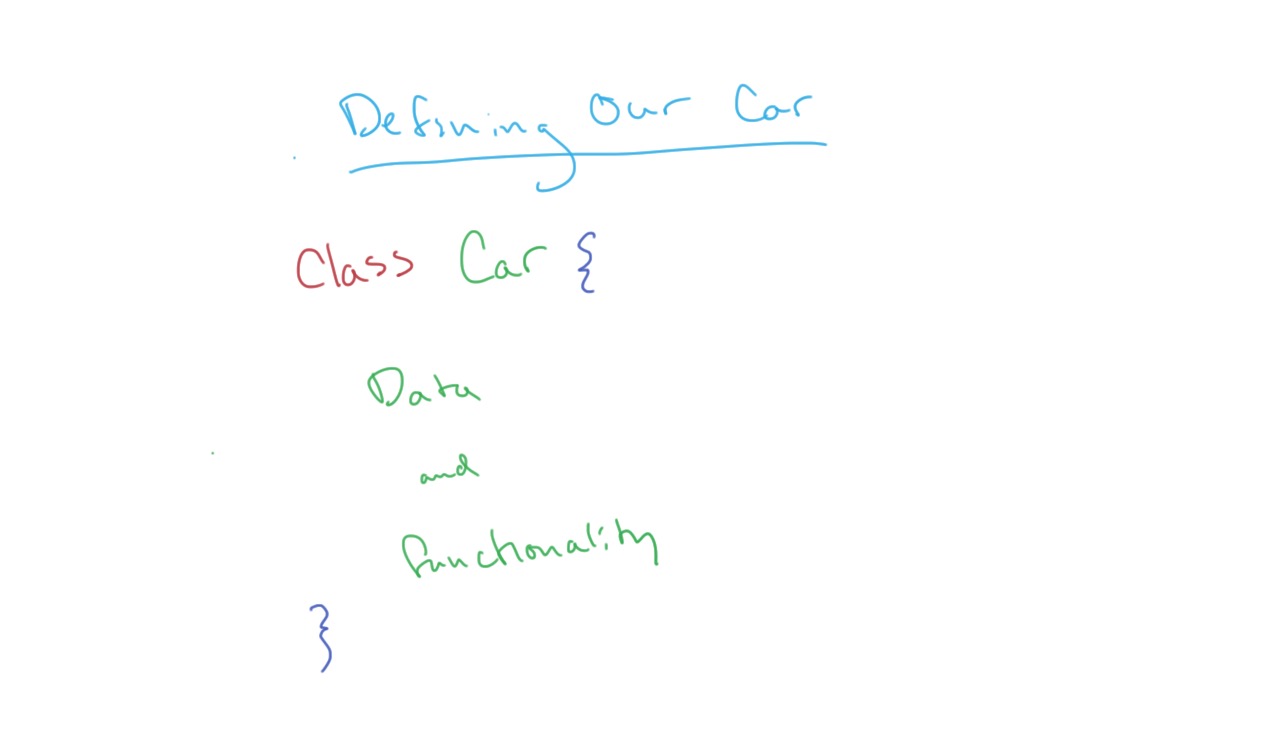 Defining Our Car
Class Car {
Data
and
functionality
}